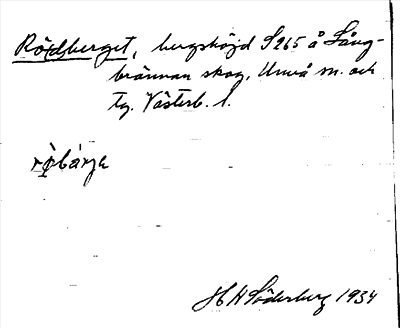 Rödberget, bergshöjd S 265 å Lång-
brännan skog, Umeå sn. och
tg. Västerb. l.
rö̀bárje
H A Söderberg 1934